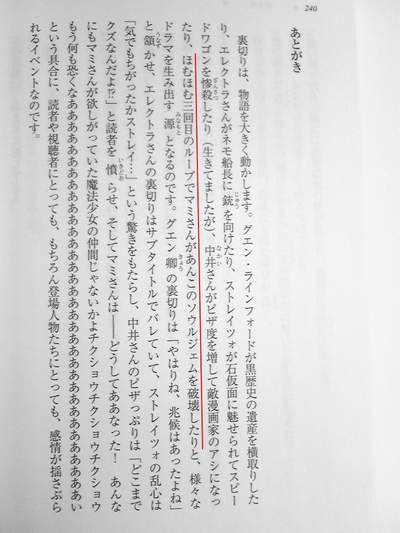 240
あとがき
裏切りは、物語を大きく動かします。グエン・ラインフォードが黒歴史の遺産を横取りした
り、エレクトラさんがネモ船長に銃を向けたり、ストレイツォが石仮面に魅せられてスピー
ドワゴンを惨殺したり（生きてましたが）、中井さんがピザ度を増して敵漫画家のアシになっ
たり、ほむほむ三回目のループでマミさんがあんこのソウルジェムを破壊したりと、様々な
ドラマを生み出す源となるのです。グエン卿の裏切りは「やはりね、兆候はあったよね」
と頷かせ、エレクトラさんの裏切りはサブタイトルでバレていて、ストレイツォの乱心は
「気でもちがったかストレイ…」という驚きをもたらし、中井さんのピザっぷりは「どこまで
クズなんだよ!?」と読者を憤らせ、そしてマミさんは――どうしてああなった！　あんな
にもマミさんが欲しがっていた魔法少女の仲間じゃないかよチクショウチクショウチクショウ
もう何も恐くなああああああああああああああああああああああああああああああい
という具合に、読者や視聴者にとっても、もちろん登場人物たちにとっても、感情が揺さぶら
れるイベントなのです。